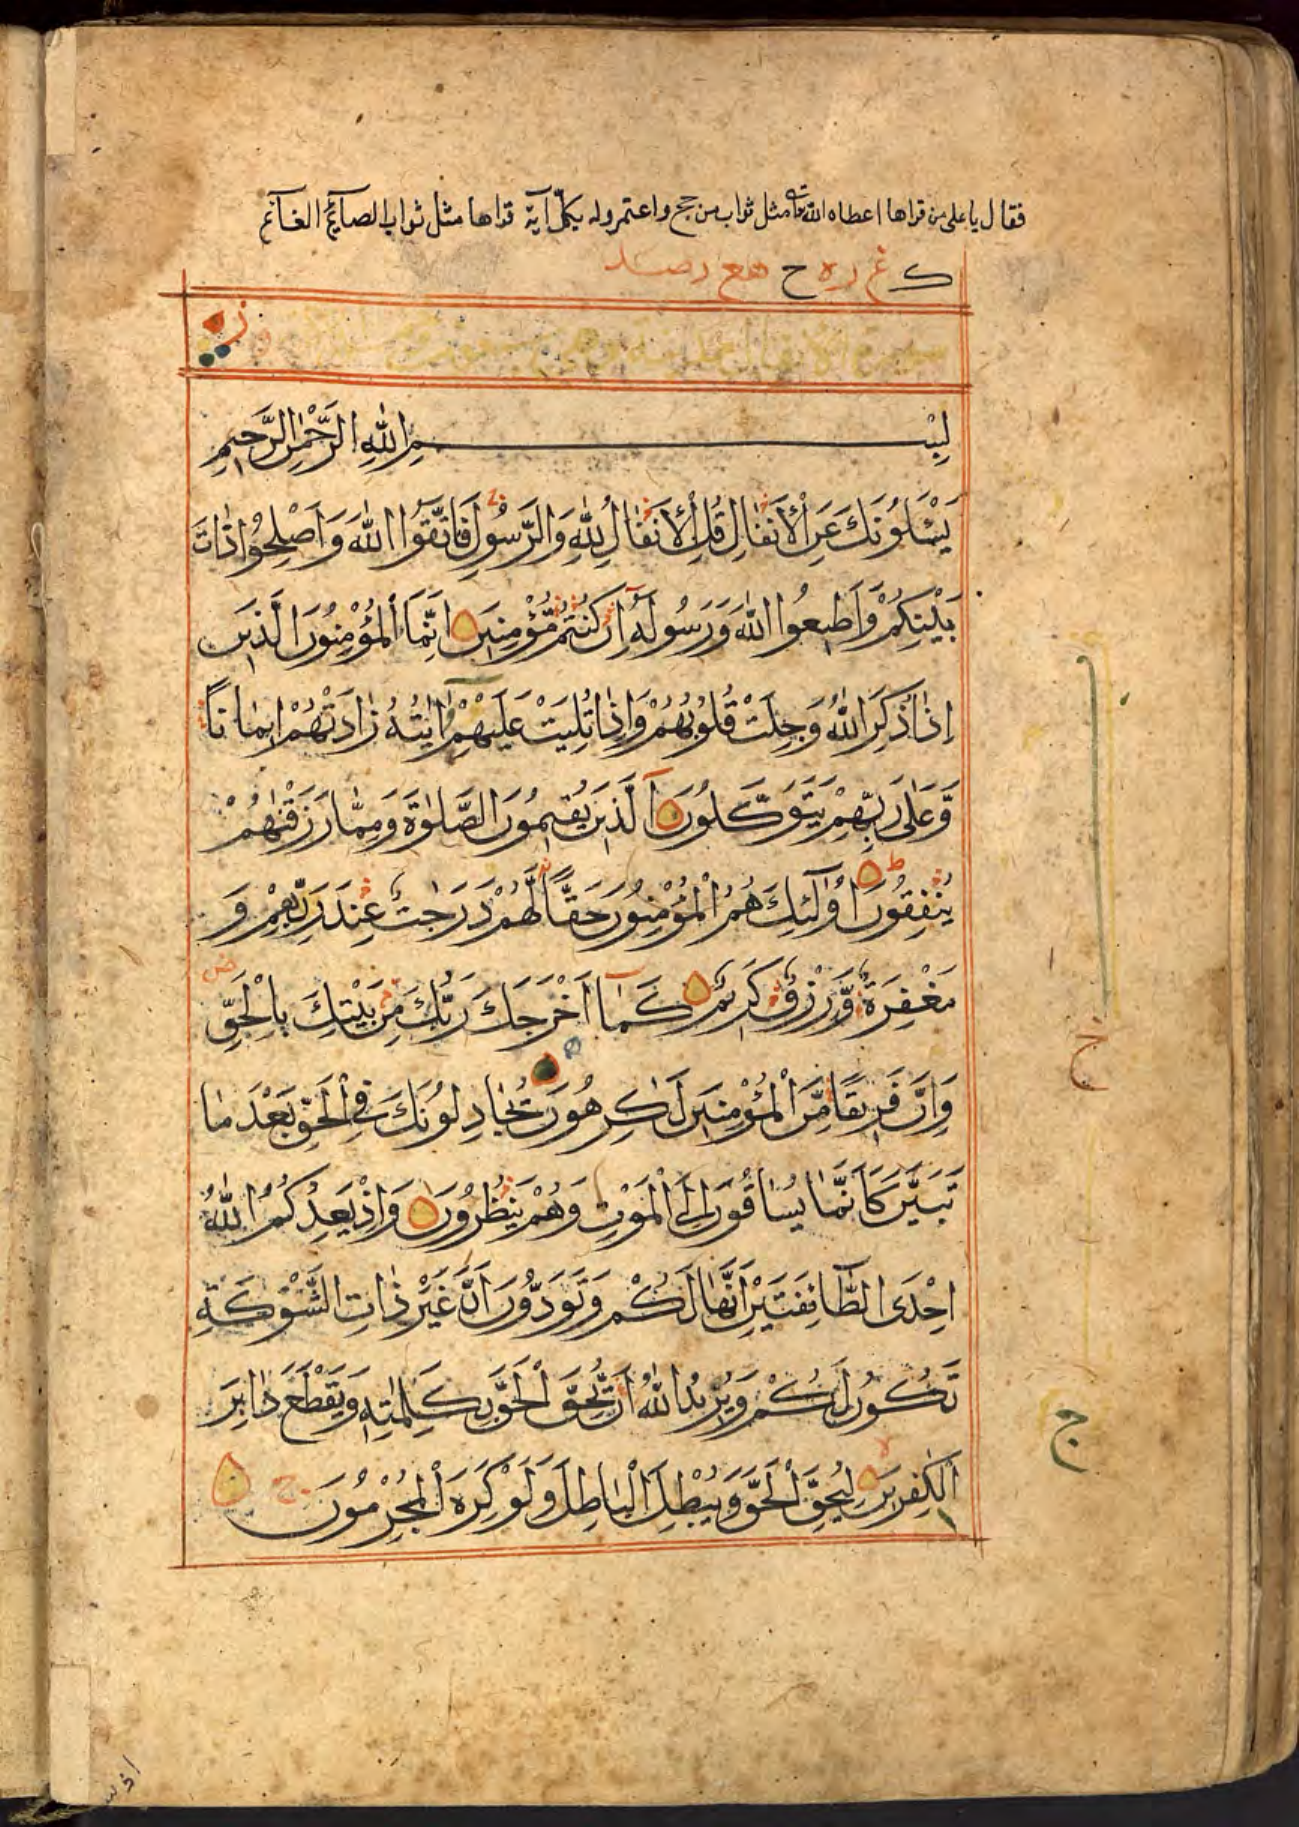 فقال يا على من قراها اعطاه الله تعالى مثل ثواب من حج واعتمر وله بكل آية قراها مثل ثواب الصآئم الغآنم
ك غ ره ح هع رصد
سورة الانفال مدنية وهى
بِسْمِ اللّٰهِ الرَّحْمٰنِ الرَّحِيمِ
يَسْـَٔلُونَكَ عَنِ الْاَنْفَالِ قُلِ الْاَنْفَالُ لِلّٰهِ وَالرَّسُولِ فَاتَّقُوا اللّٰهَ وَاَصْلِحُوا ذَاتَ
بَيْنِكُمْ وَاَطِيعُوا اللّٰهَ وَرَسُولَهُ اِنْ كُنْتُمْ مُؤْمِنِينَ اِنَّمَا الْمُؤْمِنُونَ الَّذِينَ
اِذَا ذُكِرَ اللّٰهُ وَجِلَتْ قُلُوبُهُمْ وَاِذَا تُلِيَتْ عَلَيْهِمْ اٰيٰتُهُ زَادَتْهُمْ اِيمَانًا
وَّعَلٰى رَبِّهِمْ يَتَوَكَّلُونَ اَلَّذِينَ يُقِيمُونَ الصَّلٰوةَ وَمِمَّا رَزَقْنٰهُمْ
يُنْفِقُونَ اُولٰٓئِكَ هُمُ الْمُؤْمِنُونَ حَقًّا لَّهُمْ دَرَجٰتٌ عِنْدَ رَبِّهِمْ وَ
مَغْفِرَةٌ وَّرِزْقٌ كَرِيمٌ كَمَآ اَخْرَجَكَ رَبُّكَ مِنْ بَيْتِكَ بِالْحَقِّ
وَاِنَّ فَرِيقًا مِّنَ الْمُؤْمِنِينَ لَكٰرِهُونَ يُجَادِلُونَكَ فِى الْحَقِّ بَعْدَ مَا
تَبَيَّنَ كَاَنَّمَا يُسَاقُونَ اِلَى الْمَوْتِ وَهُمْ يَنْظُرُونَ وَاِذْ يَعِدُكُمُ اللّٰهُ
اِحْدَى الطَّآئِفَتَيْنِ اَنَّهَا لَكُمْ وَتَوَدُّونَ اَنَّ غَيْرَ ذَاتِ الشَّوْكَةِ
تَكُونُ لَكُمْ وَيُرِيدُ اللّٰهُ اَنْ يُّحِقَّ الْحَقَّ بِكَلِمٰتِهِ وَيَقْطَعَ دَابِرَ
الْكٰفِرِينَ لِيُحِقَّ الْحَقَّ وَيُبْطِلَ الْبَاطِلَ وَلَوْ كَرِهَ الْمُجْرِمُونَ
ج
ج